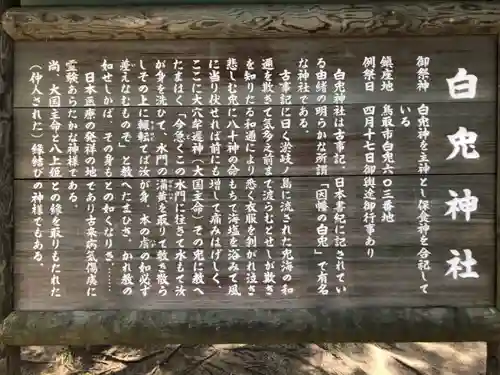 白兎神社
御祭神　白兎神を主神とし保食神を合祀して
いる
鎮座地　鳥取市白兎六〇三番地
例祭日　四月十七日御輿渡御行事あり
白兎神社は古事記、日本書紀に記されてい
る由緒の明らかな所謂「因幡の白兎」で有名
な神社である。
古事記に曰く淤岐ノ島に流された兎海の和
邇を欺きて気多之前まで渡らむとせしが欺き
を知りたる和邇により悉く衣服を剥がれ泣き
悲しむ兎に八十神の命もちて海塩を浴みて風
に当り伏せれば前にも増して痛みはげしく、
ここに大穴牟遅神（大国主命）その兎に教へ
たまはく「今急くこの水門に往きて水もて汝
が身を洗ひて、水門の蒲黄を取りて敷き散ら
しその上に輾転てば汝が身、本の膚の如必ず
差えなむものぞ」と教へたまひき。かれ教の
如せしかば、その身もとの如くなりき……
日本医療の発祥の地であり古来病気傷痍に
霊験あらたかな神様である。
尚、大国主命と八上姫との縁を取りもたれた
（仲人された）縁結びの神様でもある。